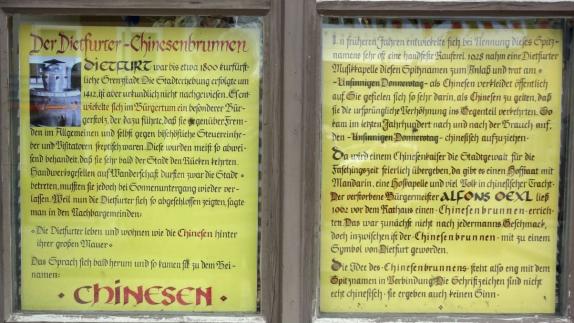 Der Dietfurter-Chinesenbrunnen
DIETFURT war bis etwa 1800 kurfürst-
liche Grenzstadt. Die Stadterhebung erfolgte um
1412, ist aber urkundlich nicht nachgewiesen. Es ent
wickelte sich im Bürgertum ein besonderer Bür-
gerstolz, der dazu führte, daß sie gegenüber Frem-
den im Allgemeinen und selbst gegen bischöfliche Steuereinhe-
ber und Visitatoren skeptisch waren. Diese wurden meist so abwei-
send behandelt, daß sie sehr bald der Stadt den Rücken kehrten.
Handwerksgesellen auf Wanderschaft durften zwar die Stadt
betreten, mußten sie jedoch bei Sonnenuntergang wieder ver-
lassen. Weil nun die Dietfurter sich so abgeschlossen zeigten, sagte
man in den Nachbargemeinden:
«Die Dietfurter leben und wohnen wie die Chinesen hinter
ihrer großen Mauer»
Das Sprach sich bald herum und so kamen sie zu dem Bei-
namen:
· CHINESEN ·
In früheren Jahren entwickelte sich bei Nennung dieses Spitz-
namens sehr oft eine handfeste Rauferei. 1928 nahm eine Dietfurter
Musikkapelle diesen Spitznamen zum Anlaß und trat am
-Unsinnigen Donnerstag- als Chinesen verkleidet öffentlich
auf. Sie gefielen sich so sehr darin, als Chinesen zu gelten, daß
sie die ursprüngliche Verhöhnung ins Gegenteil verkehrten. So
kam im letzten Jahrhundert nach und nach der Brauch auf,
den -Unsinnigen Donnerstag- chinesisch aufzuziehen.
Da wird einem Chinesenkaiser die Stadtgewalt für die
Faschingszeit feierlich übergeben, da gibt es einen Hofstaat mit
Mandarin, eine Hofkapelle und viel Volk in chinesischer Tracht.
Der verstorbene Bürgermeister ALFONS OEXL ließ
1962 vor dem Rathaus einen -Chinesenbrunnen- errich-
ten. Das war zunächst nicht nach jedermanns Geschmack,
doch inzwischen ist der -Chinesenbrunnen- mit zu einem
Symbol von Dietfurt geworden.
Die Idee des -Chinesenbrunnens- steht also eng mit dem
Spitznamen in Verbindung. Die Schriftzeichen sind nicht
echt chinesisch - sie ergeben auch keinen Sinn -